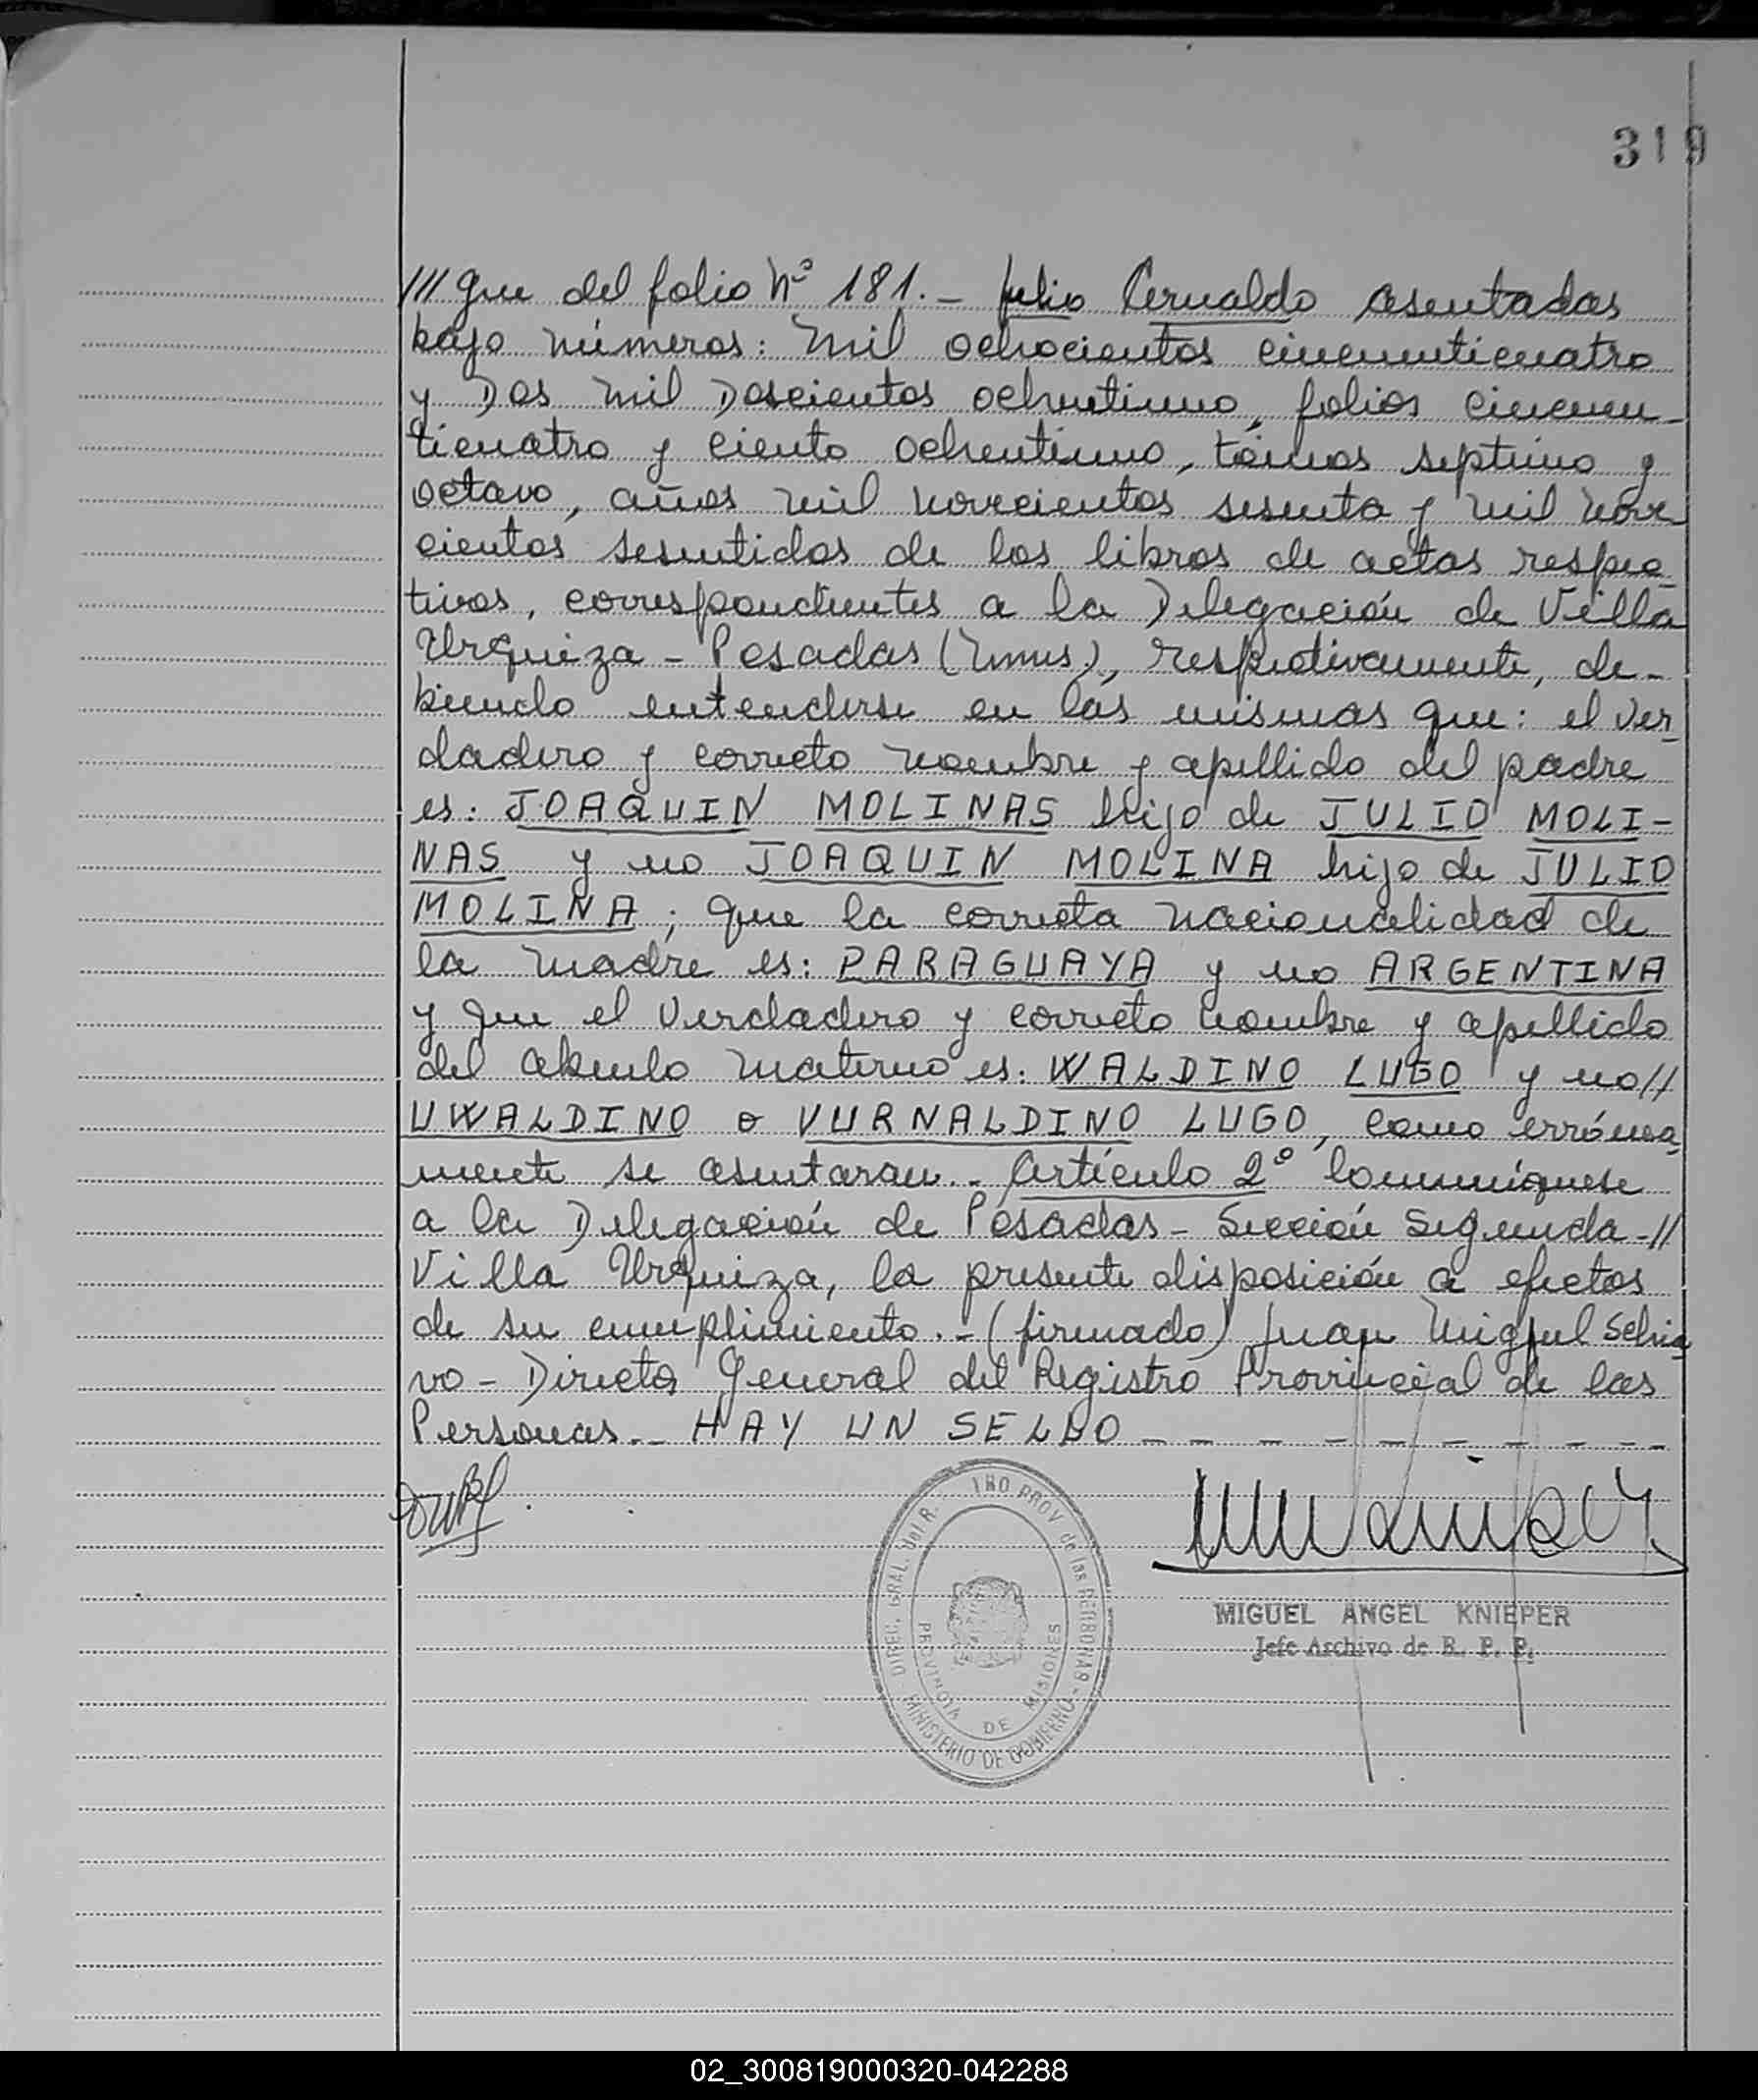 319
/// Que del folio Nº 181.- Julio Cernaldo asentadas
bajo números: mil ochocientos cincuenticuatro
y Dos mil Doscientos ochentiuno, folios cincuen-
ticuatro y ciento ochentiuno, tomos septimo y
octavo, años mil novecientos sesenta y mil nove
cientos sesentidos de los libros de actas respec-
tivos, correspondientes a la Delegación de Villa
Urquiza - Posadas (Mnes.), respectivamente, de-
biendo entenderse en las mismas que: el ver-
dadero y correcto nombre y apellido del padre
es: JOAQUIN MOLINAS hijo de JULIO MOLI-
NAS y no JOAQUIN MOLINA hijo de JULIO
MOLINA; que la correcta nacionalidad de
la madre es: PARAGUAYA y no ARGENTINA
y que el verdadero y correcto nombre y apellido
del abuelo materno es: WALDINO LUGO y no //
UWALDINO o VURNALDINO LUGO, como errónea-
mente se asentaran.- Artículo 2º Comuníquese
a la Delegación de Posadas - Sección Segunda -//
Villa Urquiza, la presente disposición a efectos
de su cumplimiento.- (firmado) Juan Miguel Schia
vo - Director General del Registro Provincial de las
Personas.- HAY UN SELLO - - - - - - - - -
DIREC. GRAL. del R. TRO PROV de las PERSONAS - MINISTERIO DE GOBIERNO -
PROVINCIA DE MISIONES
MIGUEL ANGEL KNIEPER
Jefe Archivo de R. P. P.
02_300819000320-042288